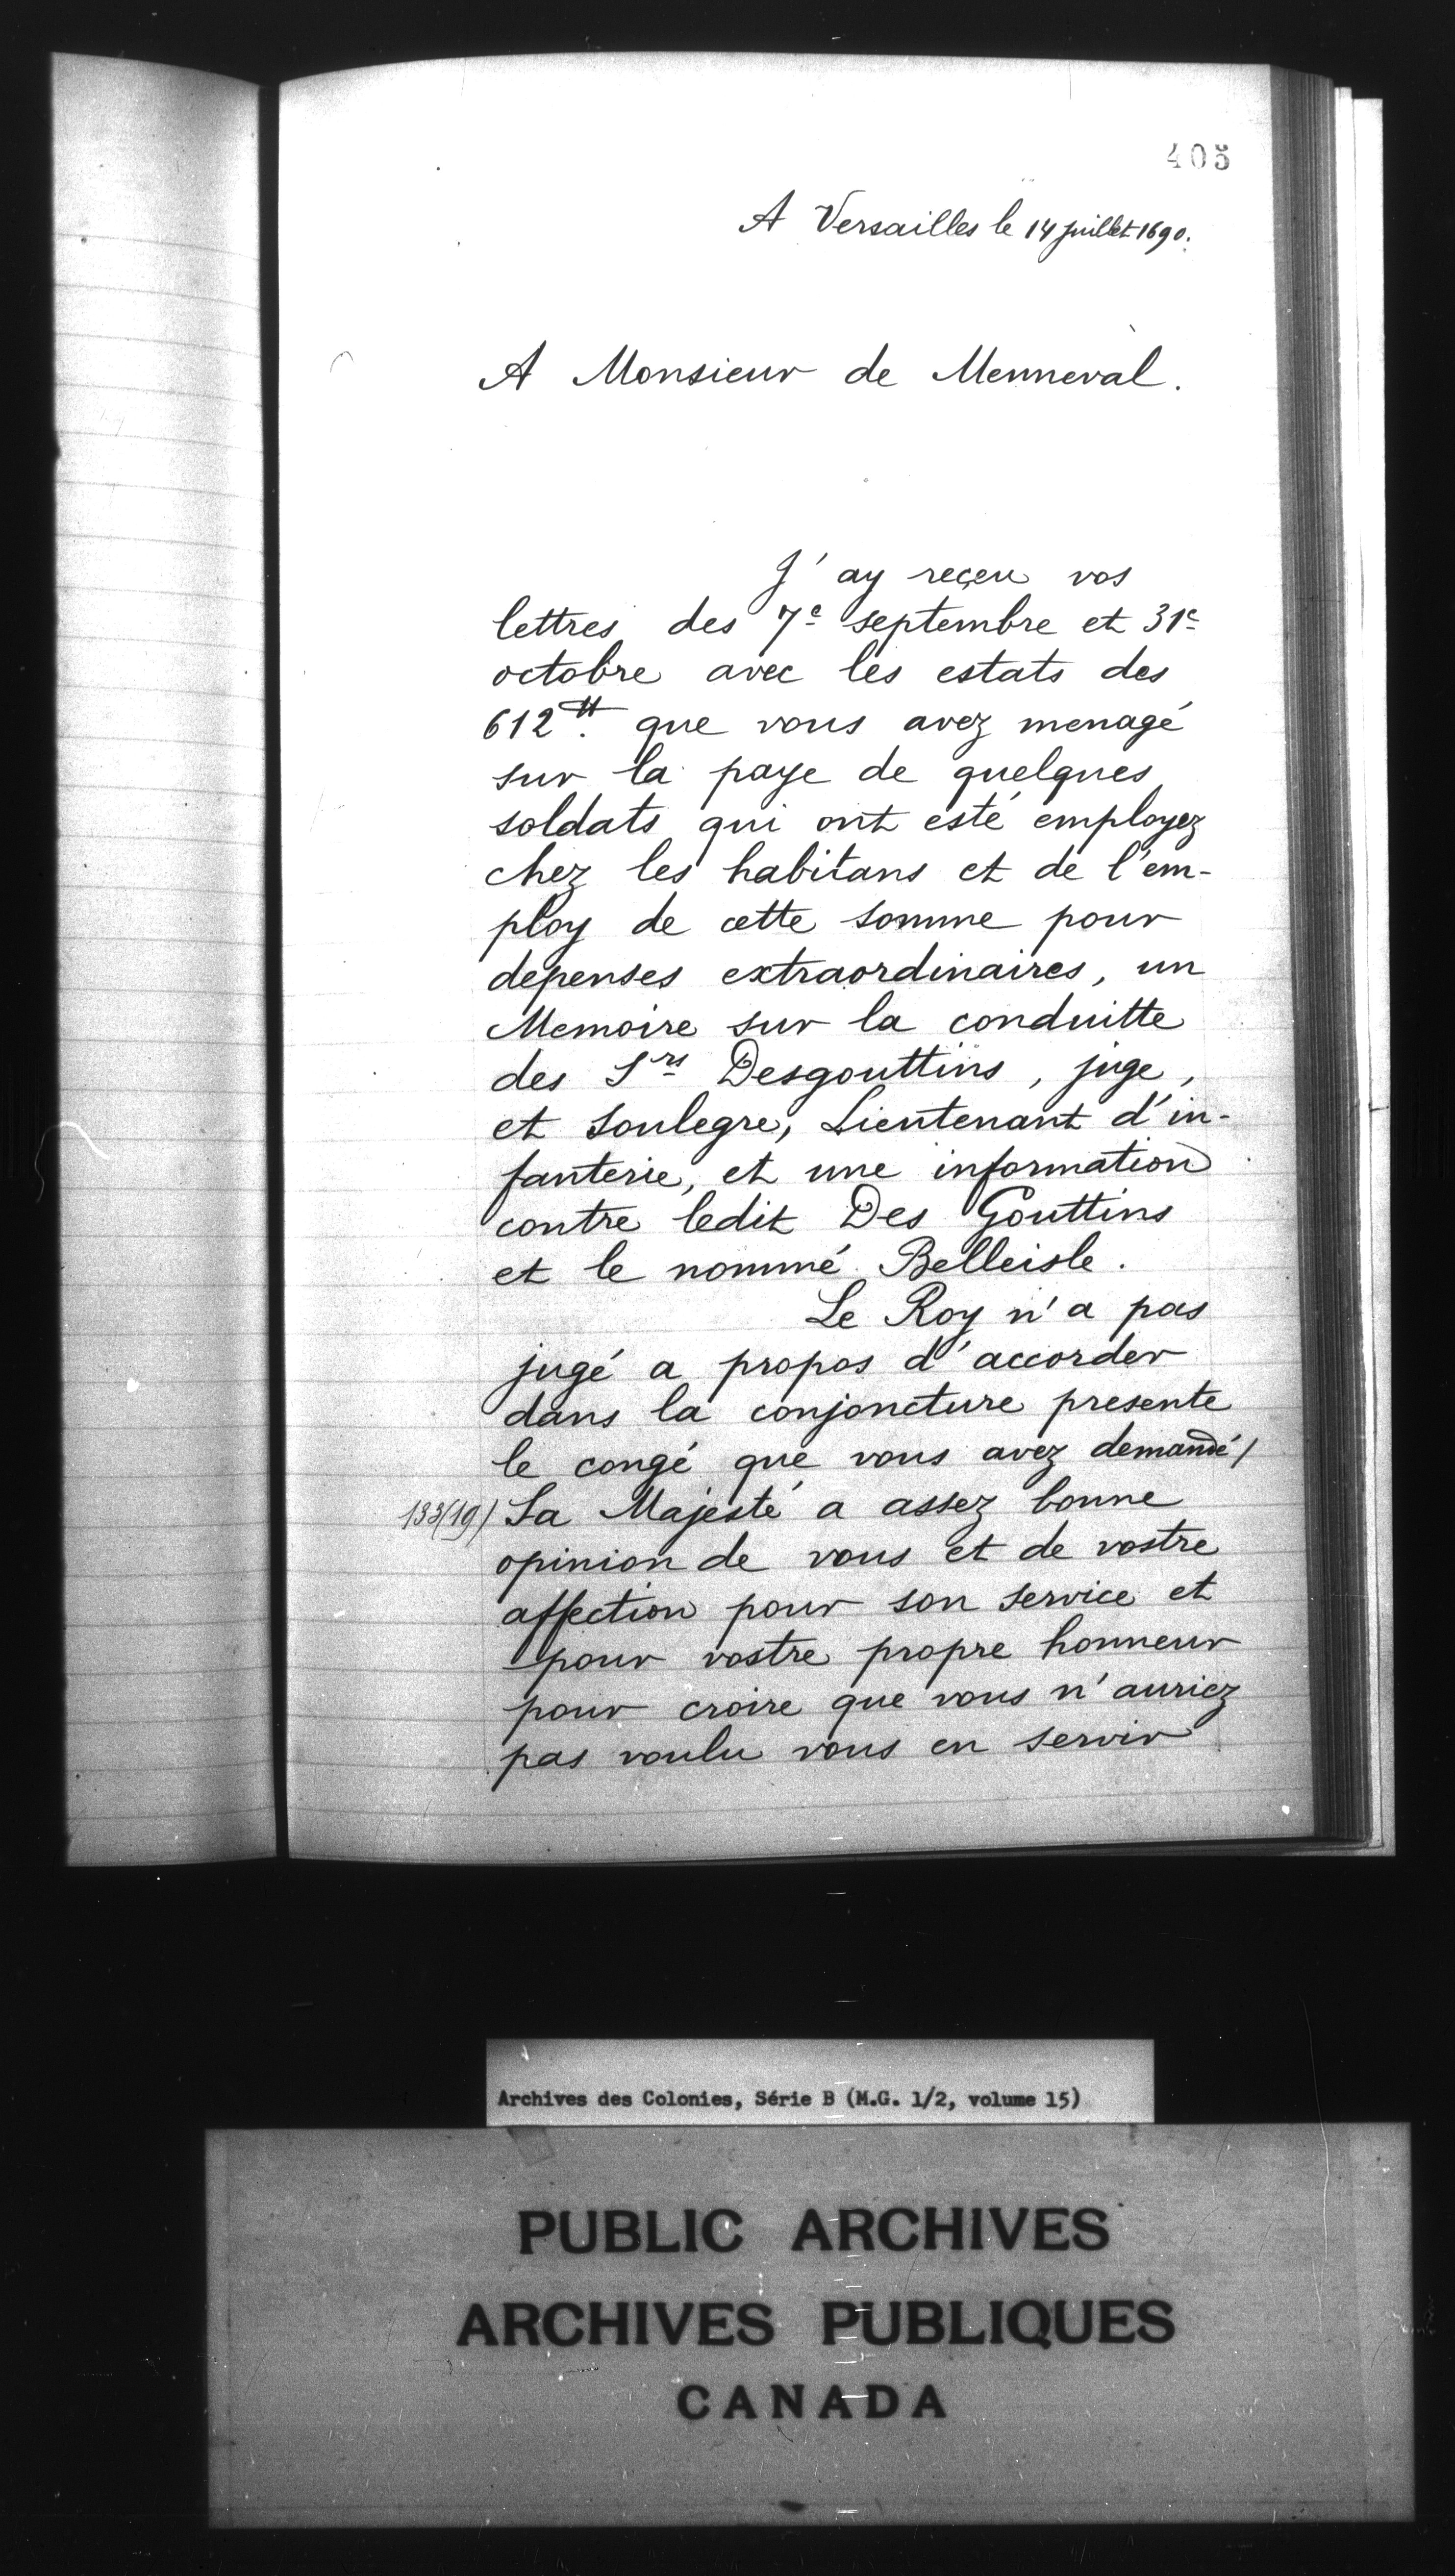 405
A Versailles le 14 juillet 1690.
A Monsieur de Menneval.
J'ay reçeu vos
lettres des 7e septembre et 31e
octobre avec les estats des
612tt. que vous avez menagé
sur la paye de quelques
soldats qui ont esté employez
chez les habitans et de l'em-
ploy de cette somme pour
depenses extraordinaires, un
Memoire sur la conduitte
des Srs Desgouttins, juge,
et Soulegre, Lieutenant d'in-
fanterie, et une information
contre ledit Des Gouttins
et le nommé Belleisle.
Le Roy n'a pas
jugé a propos d'accorder
dans la conjoncture presente
le congé que vous avez demandé/
133(19)/ Sa Majesté a assez bonne
opinion de vous et de vostre
affection pour son service et
pour vostre propre honneur
pour croire que vous n'auriez
pas voulu vous en servir
Archives des Colonies, Série B (M.G. 1/2, volume 15)
PUBLIC ARCHIVES
ARCHIVES PUBLIQUES
CANADA